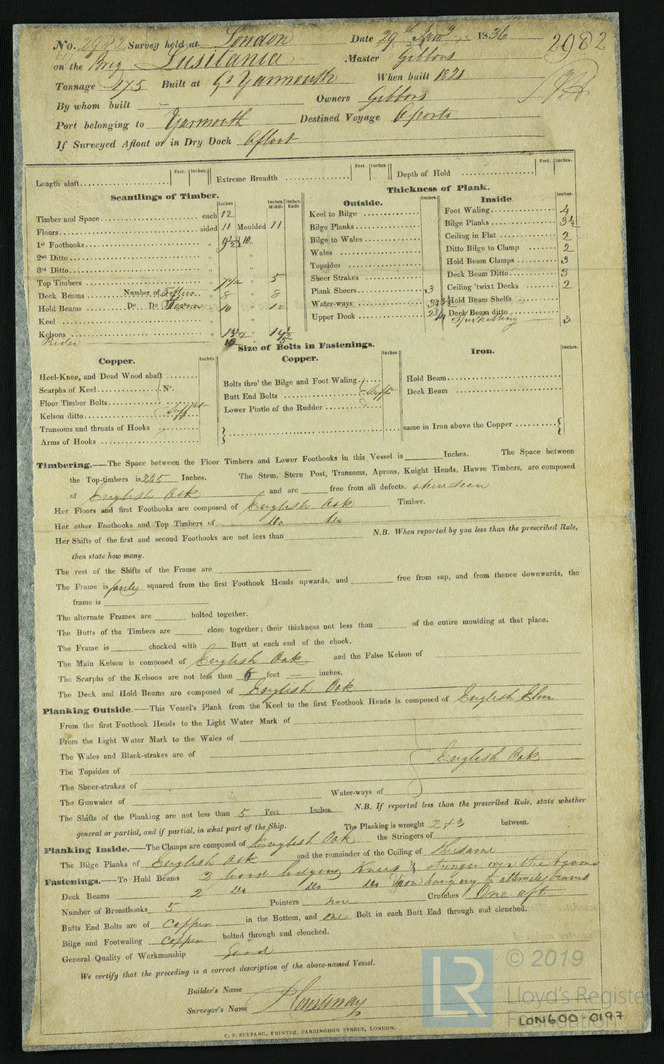 No. 2982 Survey held at London Date 29th Novr 1836 2982
on the Brig Lusitania Master Gibbons
Tonnage 175 Built at Gt Yarmouth When built 1821
By whom built Owners Gibbons
Port belonging to Yarmouth Destined Voyage Oporto
If Surveyed Afloat or in Dry Dock Afloat
Length aloft Feet. Inches. Extreme Breadth Feet. Inches. Depth of Hold Feet. Inches.
Scantlings of Timber.
Inches. Inches Middle. Inches Ends
Timber and Space each 12
Floors sided 11 Moulded 11
1st Foothooks
2nd Ditto
3rd Ditto
Top Timbers 5
Deck Beams Number of 8 8
Hold Beams Do. Do. 10
Keel
Kelsons
Rider
Thickness of Plank.
Outside. Inches.
Keel to Bilge
Bilge Planks
Bilge to Wales
Wales
Topsides
Sheer Strakes
Plank Sheers 3
Water-ways
Upper Deck
Inside. Inches.
Foot Waling 4
Bilge Planks 3½
Ceiling in Flat 2
Ditto Bilge to Clamp 2
Hold Beam Clamps 3
Deck Beam Ditto 3
Ceiling 'twixt Decks 2
Hold Beam Shelfs
Deck Beam ditto
Spirketting 3
Size of Bolts in Fastenings.
Copper. Inches
Heel-Knee, and Dead Wood abaft
Scarphs of Keel No.
Floor Timber Bolts
Kelson ditto
Transoms and throats of Hooks
Arms of Hooks
Copper. Inches
Bolts thro' the Bilge and Foot Waling
Butt End Bolts
Lower Pintle of the Rudder
Iron. Inches.
Hold Beam
Deck Beam
same in Iron above the Copper
Timbering.—The Space between the Floor Timbers and Lower Foothooks in this Vessel is Inches. The Space between
the Top-timbers is Inches. The Stem, Stern Post, Transoms, Aprons, Knight Heads, Hawse Timbers, are composed
of English Oak and are free from all defects.
Her Floors and first Foothooks are composed of English Oak Timber.
Her other Foothooks and Top Timbers of Do Do
Her Shifts of the first and second Foothooks are not less than N.B. When reported by you less than the prescribed Rule,
then state how many.
The rest of the Shifts of the Frame are
The Frame is fairly squared from the first Foothook Heads upwards, and free from sap, and from thence downwards, the
frame is
The alternate Frames are bolted together.
The Butts of the Timbers are close together; their thickness not less than of the entire moulding at that place.
The Frame is chocked with Butt at each end of the chock.
The Main Kelson is composed of English Oak and the False Kelson of
The Scarphs of the Kelsons are not less than 6 feet — inches.
The Deck and Hold Beams are composed of English Oak
Planking Outside.—This Vessel's Plank from the Keel to the first Foothook Heads is composed of English Elm
From the first Foothook Heads to the Light Water Mark of
From the Light Water Mark to the Wales of
The Wales and Black-strakes are of English Oak
The Topsides of
The Sheer-strakes of
The Gunwales of Water-ways of
The Shifts of the Planking are not less than 5 Feet Inches. N.B. If reported less than the prescribed Rule, state whether
general or partial, and if partial, in what part of the Ship. The Planking is wrought 2 & 3 between.
Planking Inside.—The Clamps are composed of English Oak the Stringers of
The Bilge Planks of English Oak and the remainder of the Ceiling of the same
Fastenings.—To Hold Beams 2 wood lodging Knees & stringer over the beams
Deck Beams 2 Do Do Do Iron hanging to alternate beams
Number of Breasthooks 5 Pointers none Crutches One aft
Butts End Bolts are of Copper in the Bottom, and One Bolt in each Butt End through and clenched.
Bilge and Footwaling Copper bolted through and clenched.
General Quality of Workmanship Good
We certify that the preceding is a correct description of the above-named Vessel.
Builder's Name
Surveyor's Name
C. F. SEYFANG, PRINTER, FARRINGDON STREET, LONDON.
LR © 2019
Lloyd's Register
Foundation
LON600-0197